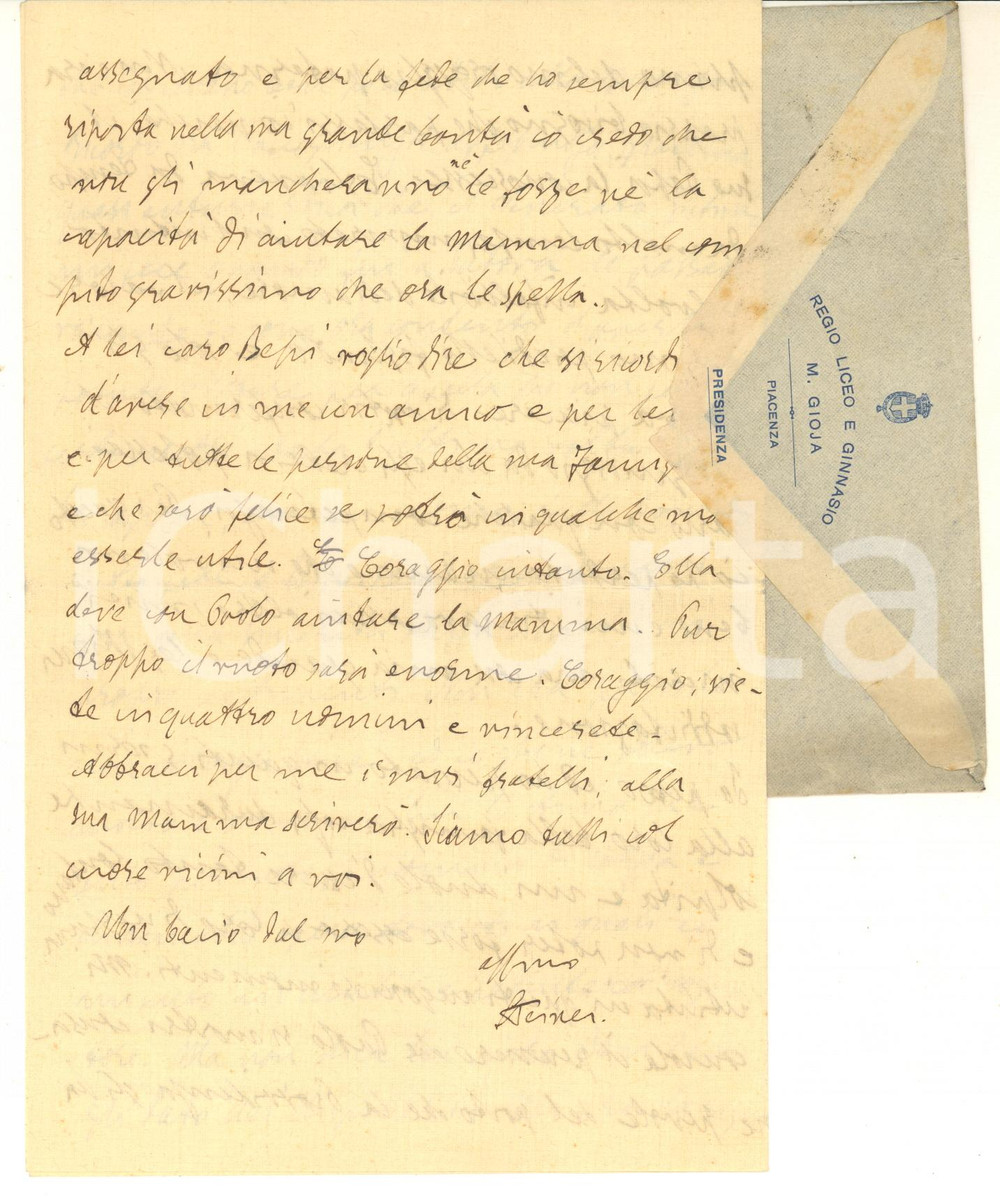 assegnato e per la fede che ho sempre
riposta nella sua grande bontà io credo che
non gli mancheranno nè le forze nè la
capacità di aiutare la Mamma nel com
pito gravissimo che ora le spetta.
A lei caro Bepi voglio dire che si ricordi
d'avere in me un amico e per lei
e per tutte le persone della sua
e che sarò felice se potrò in qualche mo
esserle utile. Coraggio intanto. Ella
deve con Paolo aiutare la Mamma. Pur
troppo il vuoto sarà enorme. Coraggio; sie-
te in quattro uomini e vincerete.
Abbracci per me i suoi fratelli; alla
sua Mamma scriverò. Siamo tutti col
cuore vicini a voi.
Un bacio dal suo
affmo
REGIO LICEO E GINNASIO
M. GIOJA
PIACENZA
PRESIDENZA
iCharta